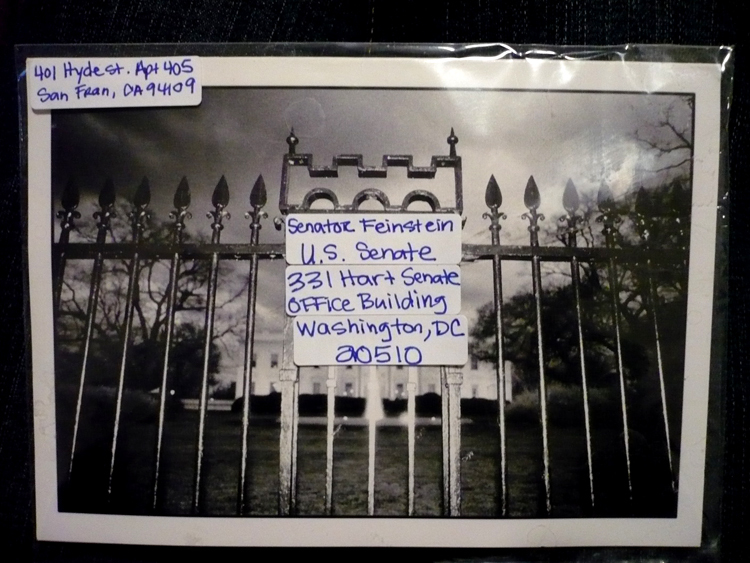 401 Hyde st. Apt 405
San Fran, CA 94109
Senator Feinstein
U.S. Senate
331 Hart Senate
OFFice Building
Washington, DC
20510